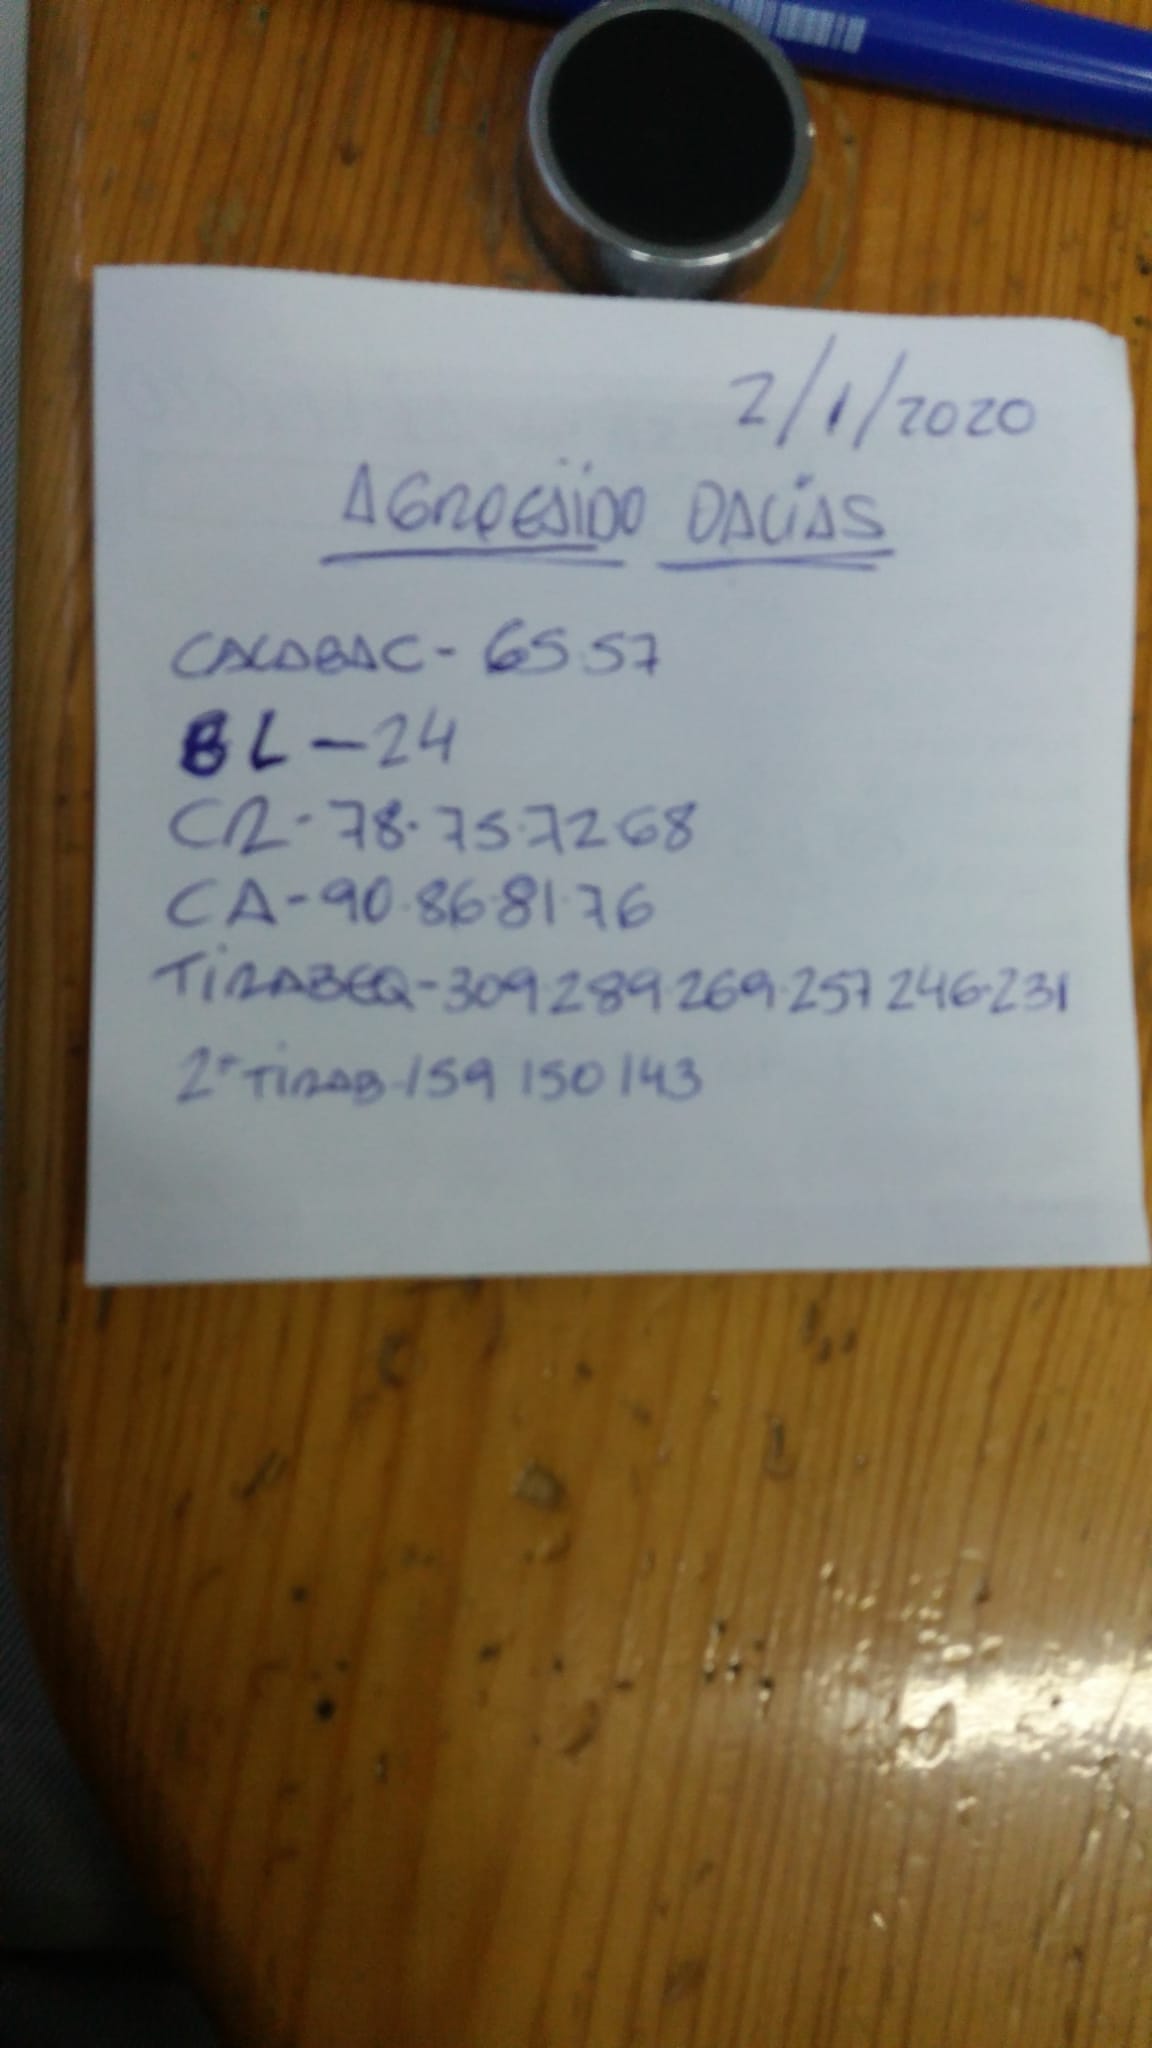 2/1/2020
AGROEJIDO DALIAS
CALABAC - 65 57
BL - 24
CR - 78. 75. 72 68
CA - 90. 86. 81. 76
TIRABEQ - 309. 289 269. 257 246. 231
2ª TIRAB - 159 150 143